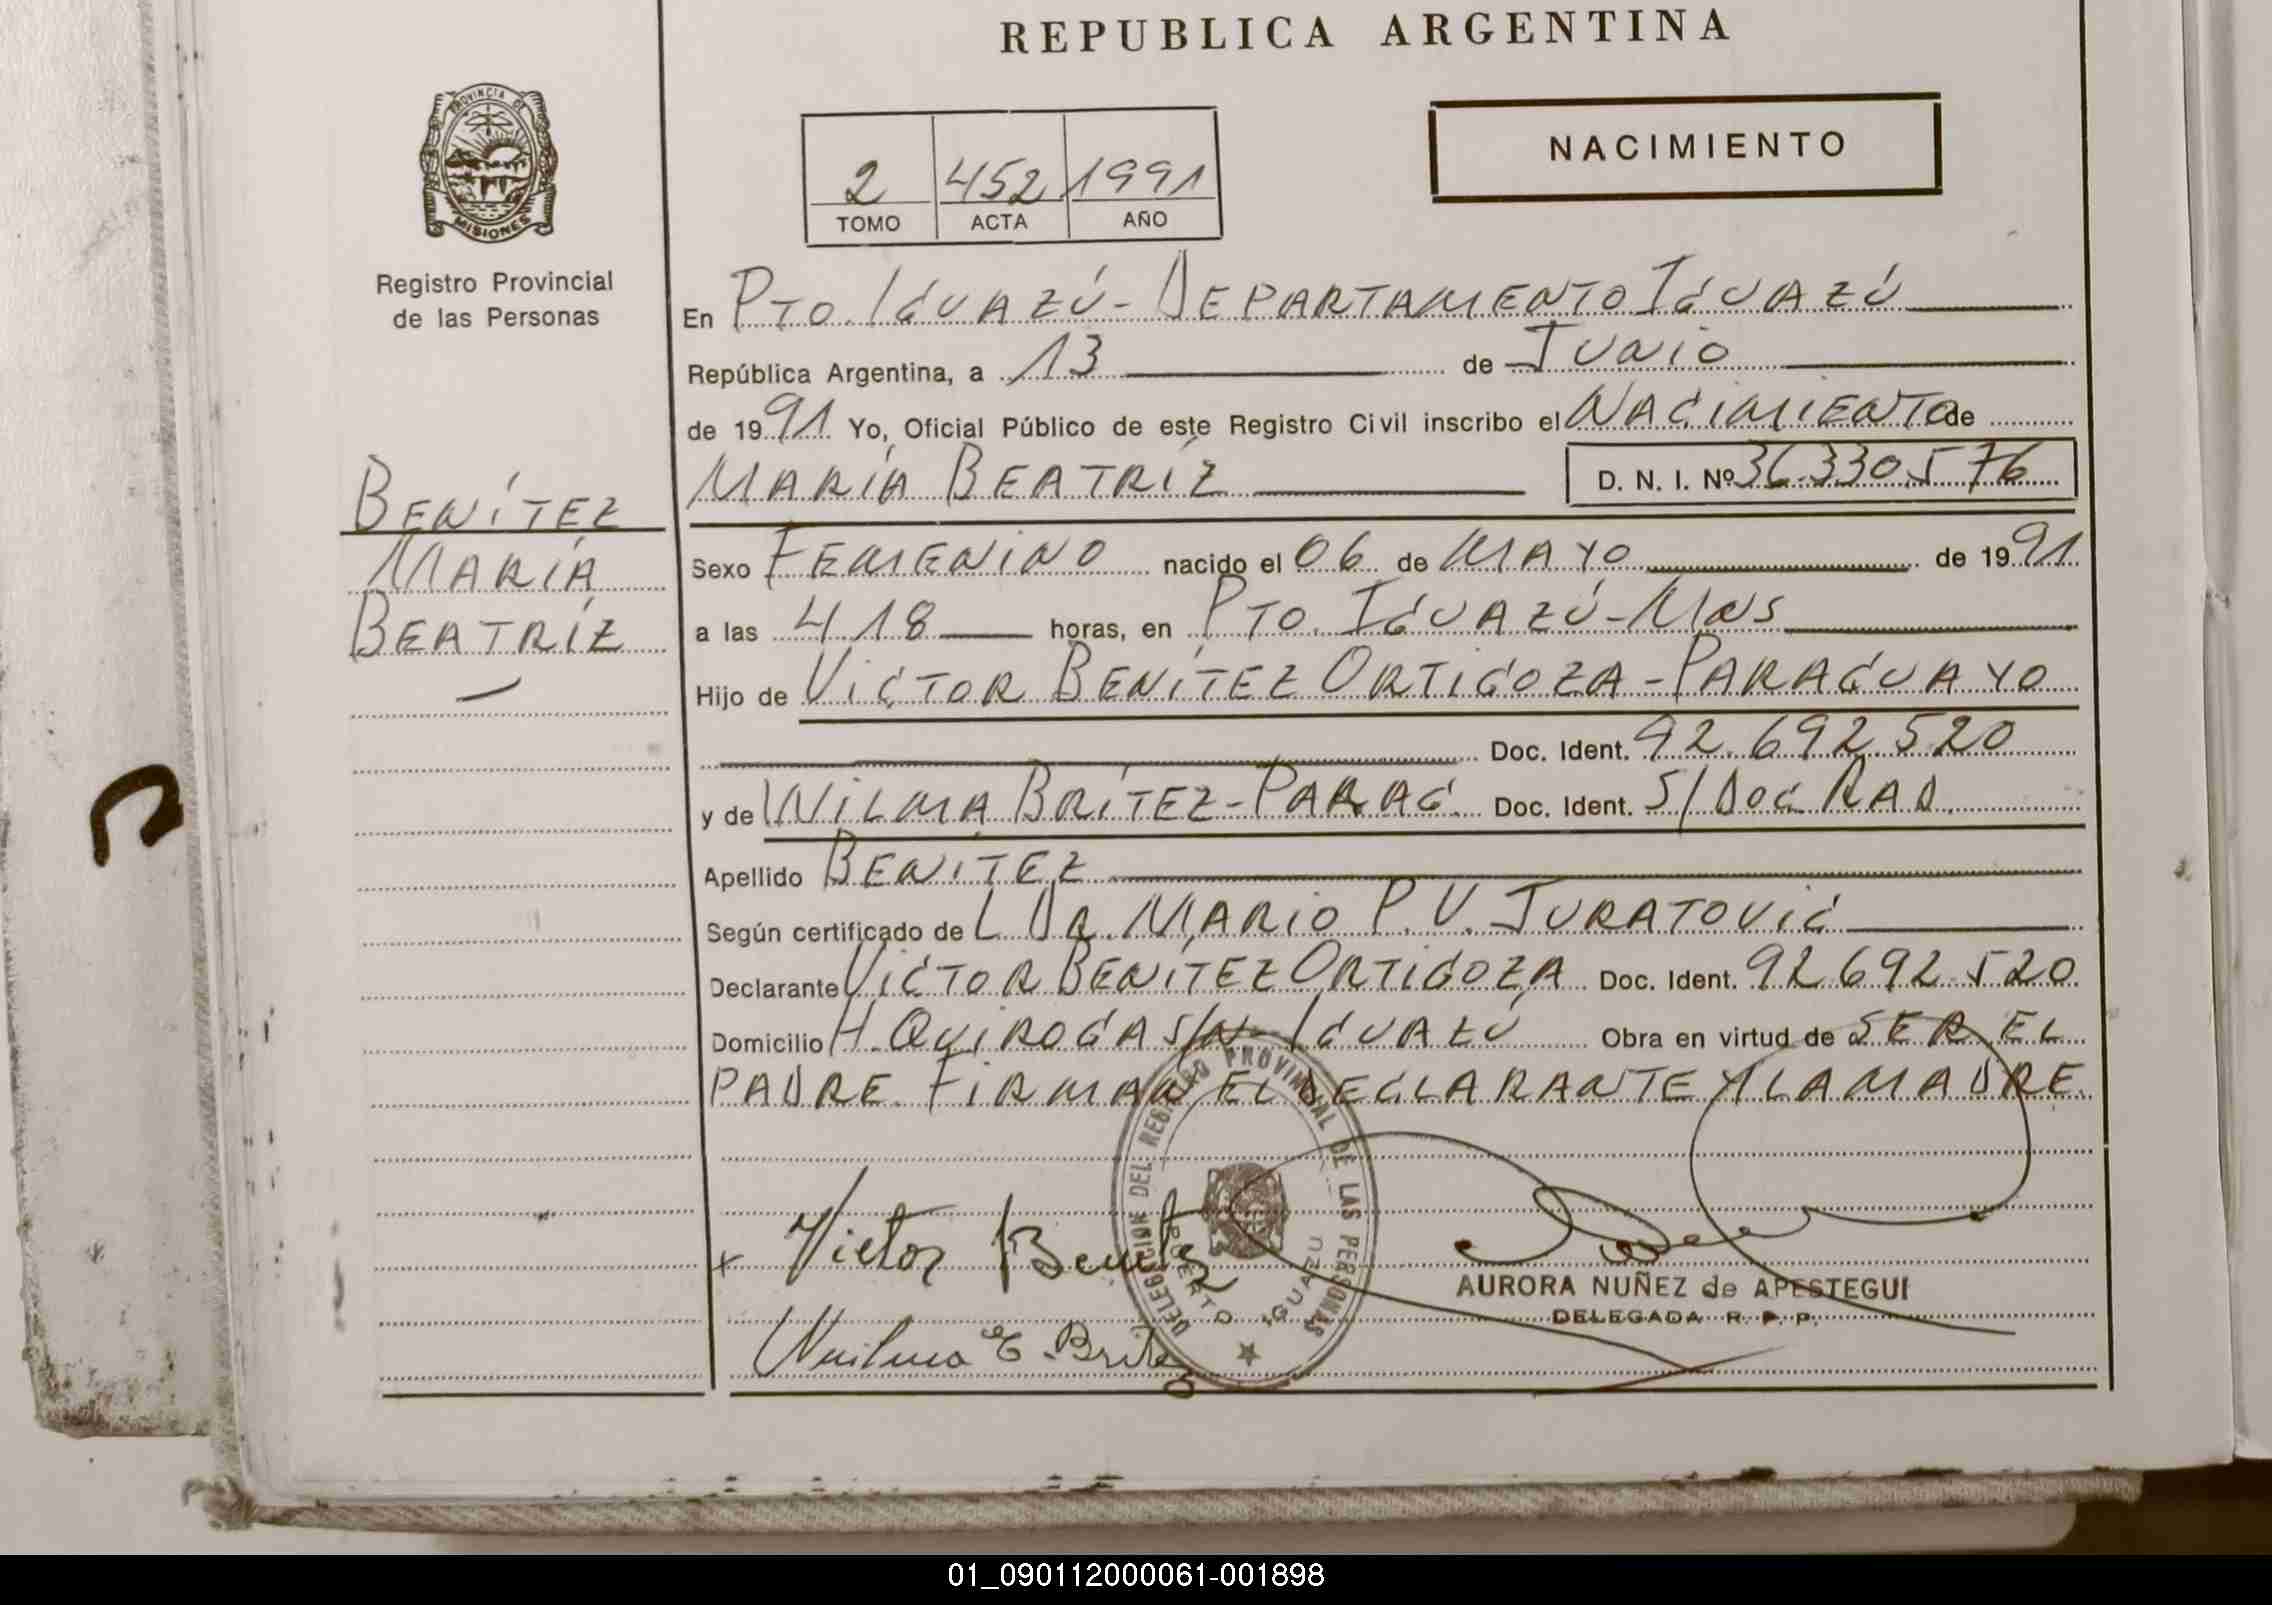 REPUBLICA ARGENTINA
PROVINCIA DE
MISIONES
Registro Provincial
de las Personas
NACIMIENTO
2 452 1991
TOMO ACTA AÑO
En PTO. IGUAZÚ - DEPARTAMENTO IGUAZÚ
República Argentina, a 13 de JUNIO
de 1991 Yo, Oficial Público de este Registro Civil inscribo el NACIMIENTO de
MARÍA BEATRÍZ D. N. I. Nº 36.330.576
BENÍTEZ
MARÍA
BEATRÍZ
Sexo FEMENINO nacido el 06 de MAYO de 1991
a las 4 18 horas, en PTO. IGUAZÚ - MNS
Hijo de VICTOR BENÍTEZ ORTIGOZA - PARAGUAYO
Doc. Ident. 92.692.520
y de WILMA BRÍTEZ - PARAG. Doc. Ident. S/DOC RAD.
Apellido BENÍTEZ
Según certificado de L DR. MARIO P. V. JURATOVIC
Declarante VICTOR BENÍTEZ ORTIGOZA Doc. Ident. 92.692.520
Domicilio H. QUIROGA S/N - IGUAZÚ Obra en virtud de SER EL
PADRE. FIRMAN EL DECLARANTE Y LA MADRE.
DELEGACION DEL REGISTRO PROVINCIAL DE LAS PERSONAS
PUERTO IGUAZU
x Victor Benitez
Wilma E. Britez
AURORA NUÑEZ de APESTEGUI
DELEGADA R. P. P.
01_090112000061-001898